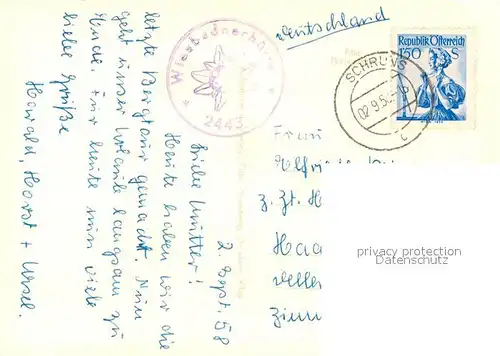 2. Sept. 58
Liebe Mutter!
Heute haben wir die
letzte Bergtour gemacht. Nun
geht unser Urlaub langsam zu
Ende. Für heute nun viele
liebe Grüße
Harald, Horst + Ursel.
Wiesbadnerhütte
2443
Deutschland
SCHRUNS
02.9.5
c
Republik Österreich
1.50 S
z. Zt. H
Haa
Zimm
privacy protection
Datenschutz